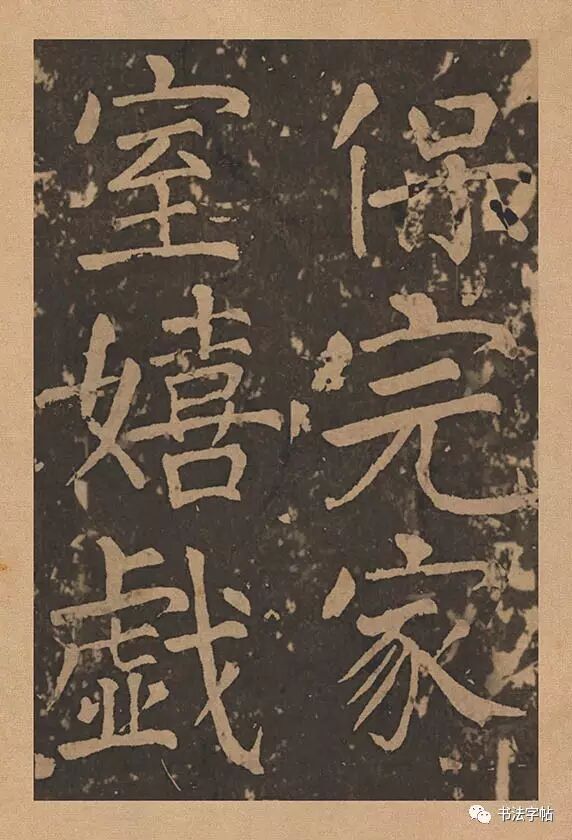 保完家
室嬉戱
书法字帖